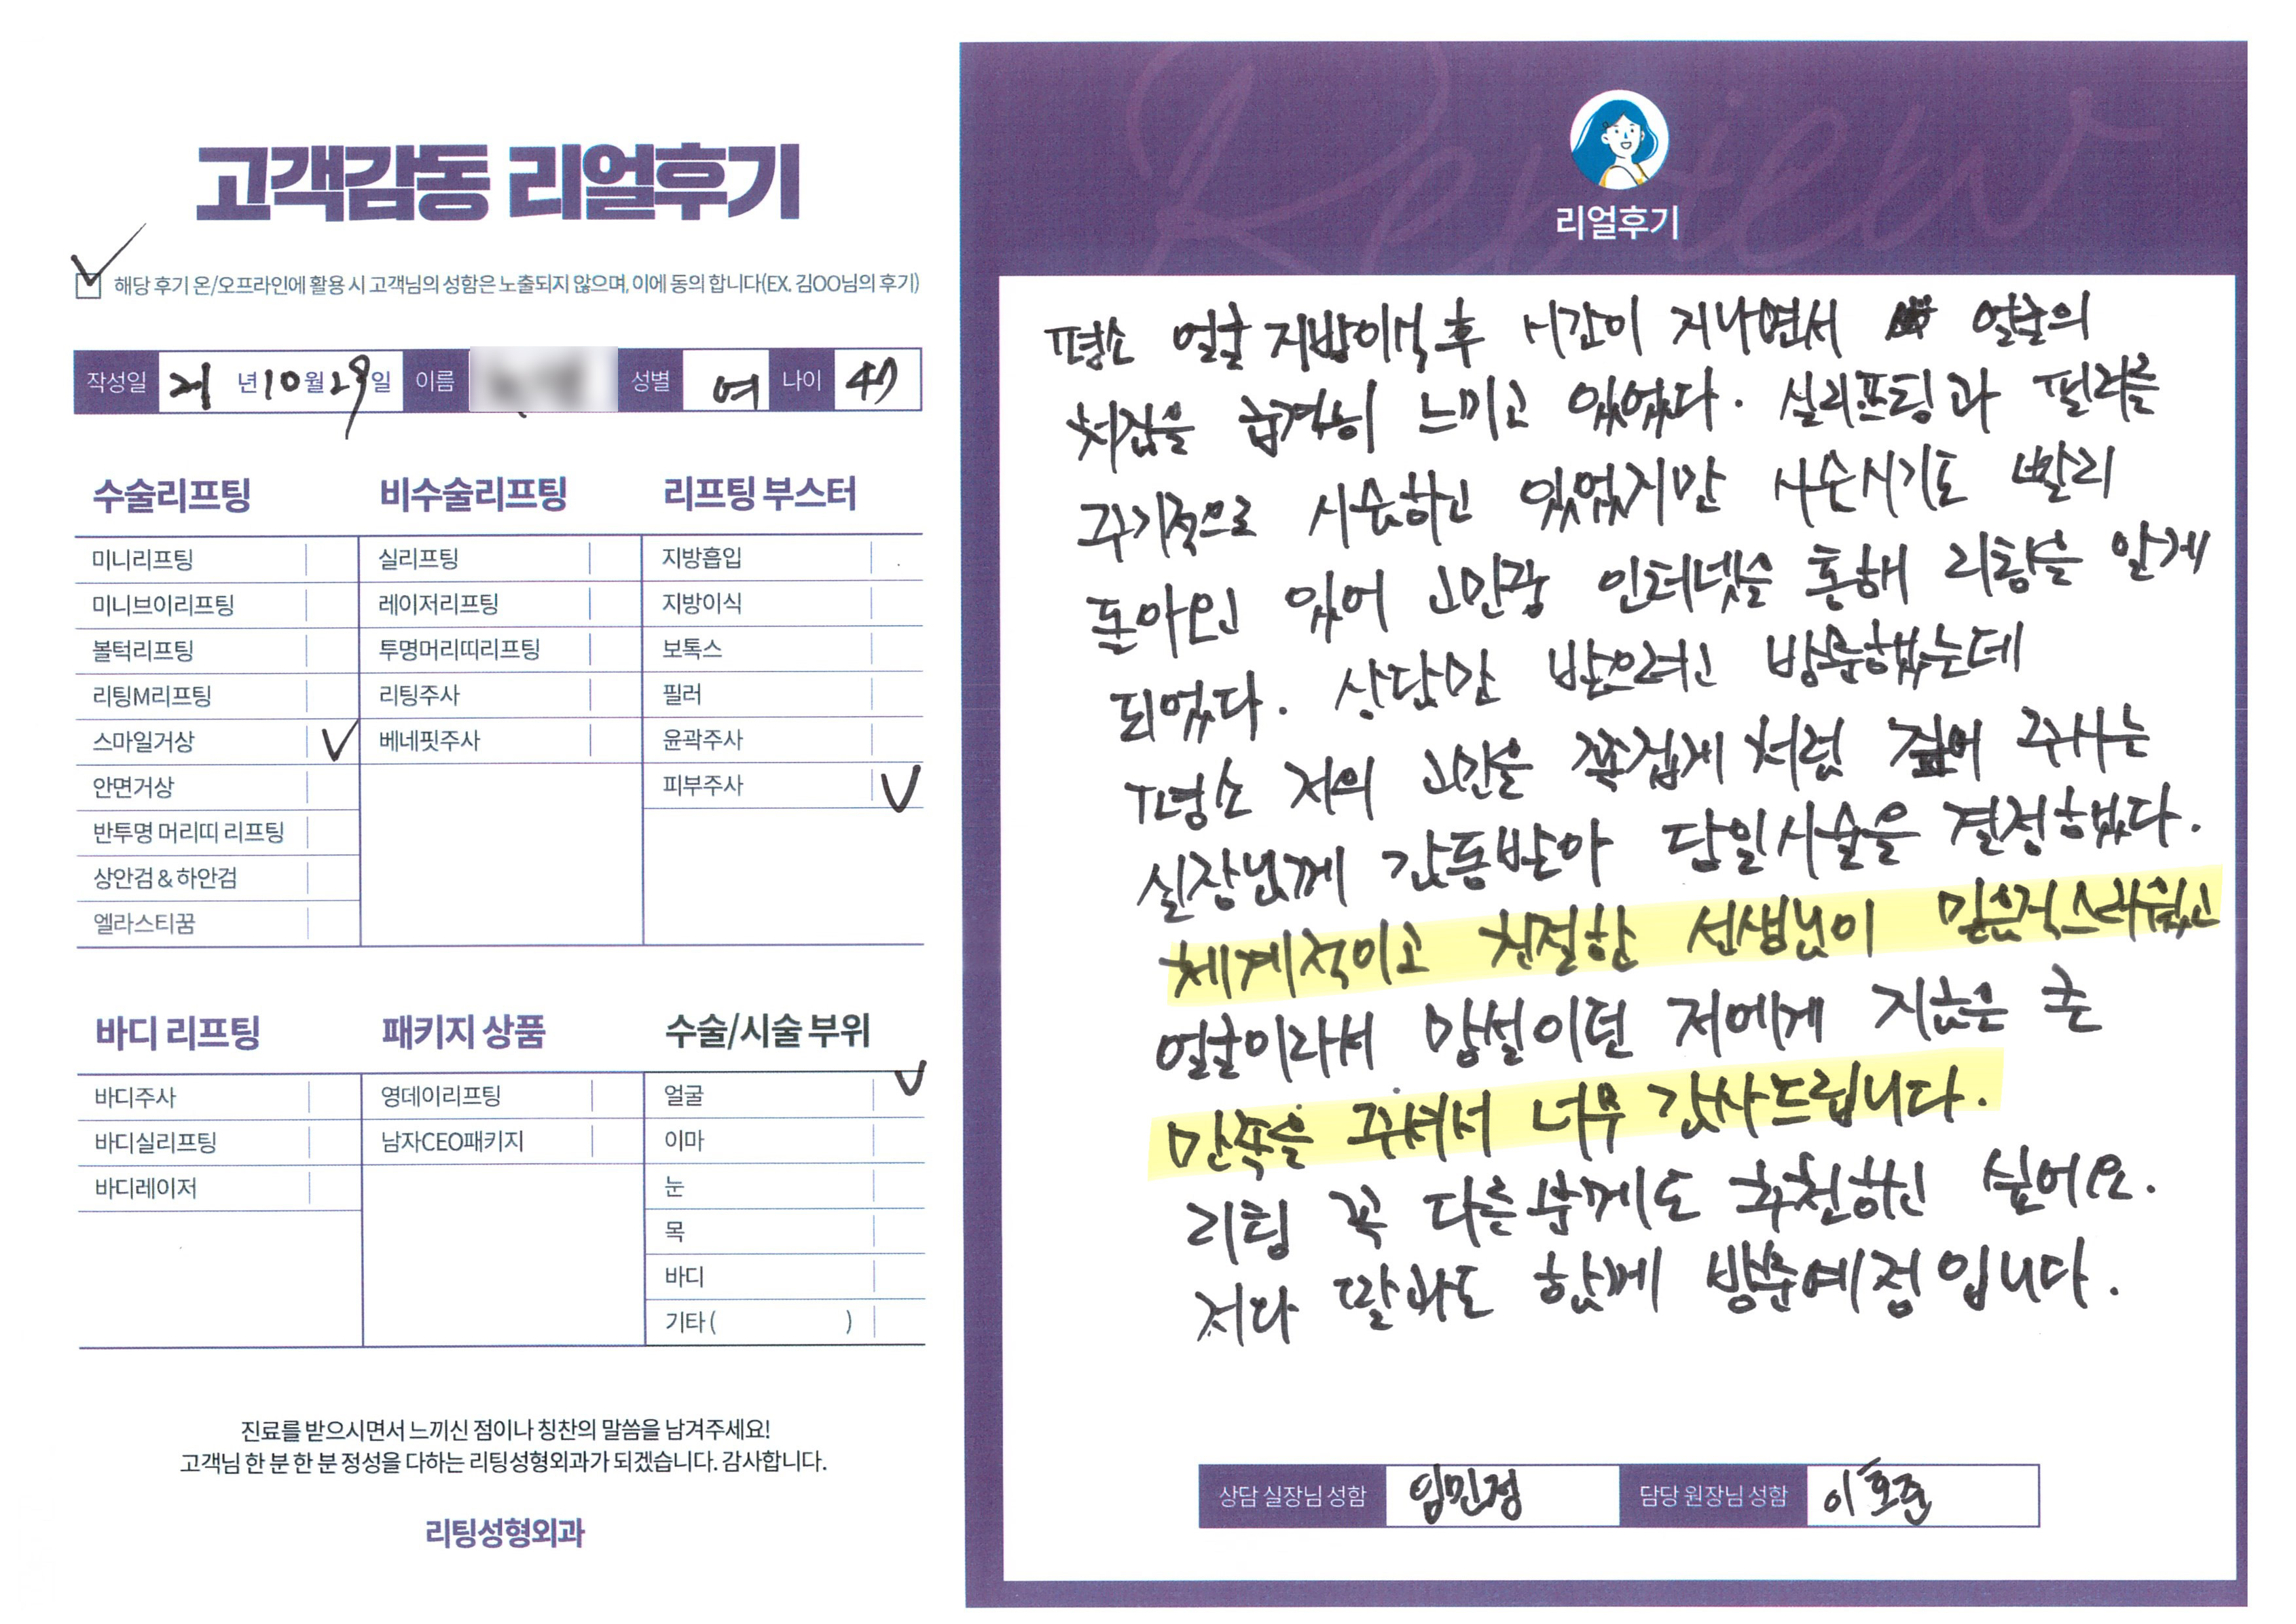 고객감동 리얼후기
해당 후기 온/오프라인에 활용 시 고객님의 성함은 노출되지 않으며, 이에 동의 합니다(EX. 김OO님의 후기)
작성일 21 년 10 월 29 일 이름 성별 여 나이 47
수술리프팅
미니리프팅
미니브이리프팅
볼턱리프팅
리팅M리프팅
스마일거상 ✓
안면거상
반투명 머리띠 리프팅
상안검 & 하안검
엘라스티꿈
비수술리프팅
실리프팅
레이저리프팅
투명머리띠리프팅
리팅주사
베네핏주사
리프팅 부스터
지방흡입
지방이식
보톡스
필러
윤곽주사
피부주사 ✓
바디 리프팅
바디주사
바디실리프팅
바디레이저
패키지 상품
영데이리프팅
남자CEO패키지
수술/시술 부위
얼굴 ✓
이마
눈
목
바디
기타 ( )
진료를 받으시면서 느끼신 점이나 칭찬의 말씀을 남겨주세요!
고객님 한 분 한 분 정성을 다하는 리팅성형외과가 되겠습니다. 감사합니다.
리팅성형외과
Review
리얼후기
평소 얼굴 지방이식 후 시간이 지나면서 얼굴의
처짐을 급격히 느끼고 있었다. 실리프팅과 필러를
주기적으로 시술하고 있었지만 시술시기도 빨리
돌아오고 있어 고민중 인터넷을 통해 리팅을 알게
되었다. 상담만 받으려고 방문했는데
평소 저의 고민을 족집게 처럼 집어 주시는
실장님께 감동받아 당일시술을 결정했다.
체계적이고 친절한 선생님이 믿음직스러웠고
얼굴이라서 망설이던 저에게 지금은 큰
만족을 주셔서 너무 감사드립니다.
리팅 꼭 다른분께도 추천하고 싶어요.
저다 딸과도 함께 방문예정입니다.
상담 실장님 성함 임민정 담당 원장님 성함 이호준